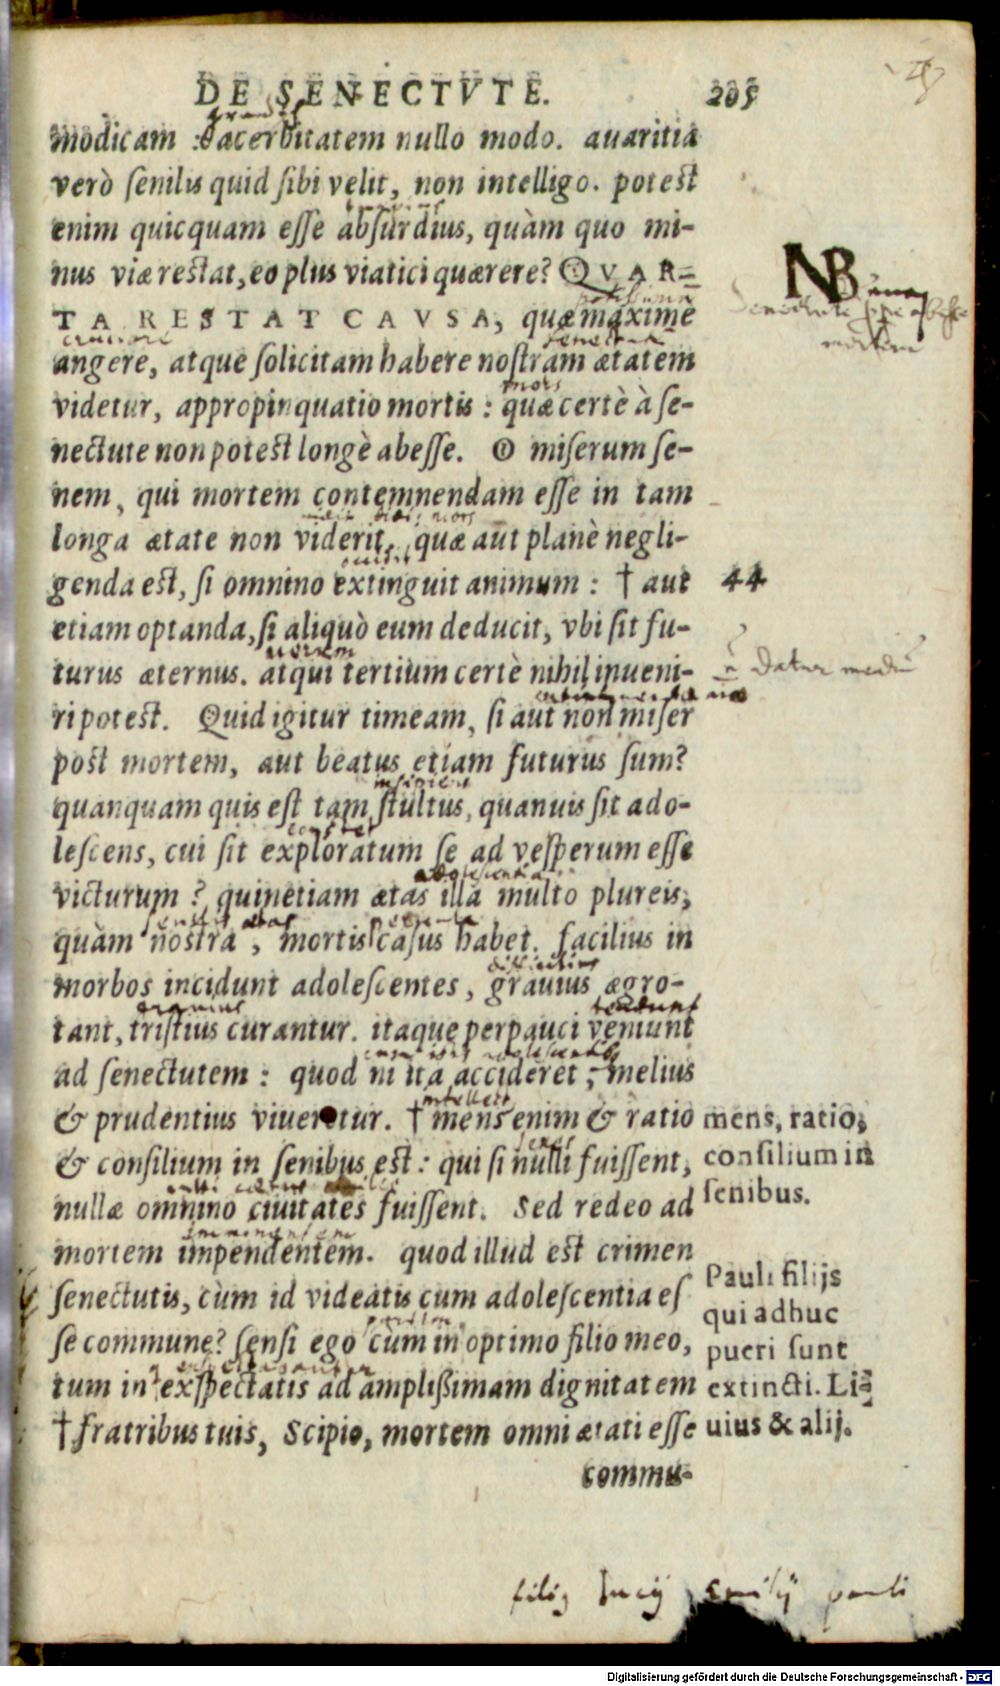 DE SENECTVTE. 205
modicam : acerbitatem nullo modo. auaritia
verò ſenilis quid ſibi velit, non intelligo. poteſt
enim quicquam eſſe abſurdius, quàm quo mi-
nus viæ reſtat, eo plus viatici quærere? QVAR-
TA RESTAT CAVSA, quæ maximè
angere, atque ſolicitam habere noſtram ætatem
videtur, appropinquatio mortis : quæ certè à ſe-
nectute non poteſt longè abeſſe. O miſerum ſe-
nem, qui mortem contemnendam eſſe in tam
longa ætate non viderit, quæ aut planè negli-
genda eſt, ſi omnino extinguit animum : † aut
44
etiam optanda, ſi aliquò eum deducit, vbi ſit fu-
turus æternus. atqui tertium certè nihil inueni-
datur mediū
ri poteſt. Quid igitur timeam, ſi aut non miſer
poſt mortem, aut beatus etiam futurus ſum?
insipiens
quanquam quis eſt tam ſtultus, quanuis ſit ado-
leſcens, cui ſit exploratum ſe ad veſperum eſſe
adolescentia
victurum ? quinetiam ætas illa multo plureis,
quàm noſtra, mortis caſus habet. facilius in
morbos incidunt adoleſcentes, grauius ægro-
tant, triſtius curantur. itaque perpauci veniunt
ad ſenectutem : quod ni ita accideret, melius
& prudentius viueretur. † mens enim & ratio
& conſilium in ſenibus eſt : qui ſi nulli fuiſſent,
nullæ omnino ciuitates fuiſſent. Sed redeo ad
mens, ratio,
conſilium in
ſenibus.
mortem impendentem. quod illud eſt crimen
ſenectutis, cùm id videatis cum adoleſcentia eſ
ſe commune? ſenſi ego cum in optimo filio meo,
tum in exſpectatis ad ampliſſimam dignitatem
† fratribus tuis, Scipio, mortem omni ætati eſſe
Pauli filijs
qui adhuc
pueri ſunt
extincti. Li-
uius & alij.
commu-
filij Lucij Emilij pauli
Digitalisierung gefördert durch die Deutsche Forschungsgemeinschaft - DFG